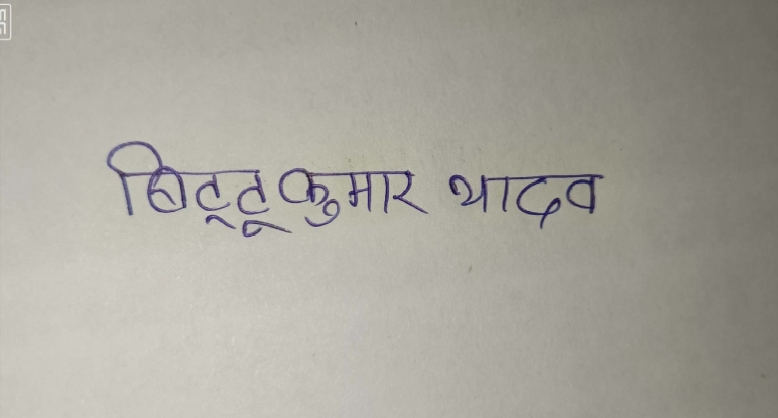 बिट्टू कुमार यादव